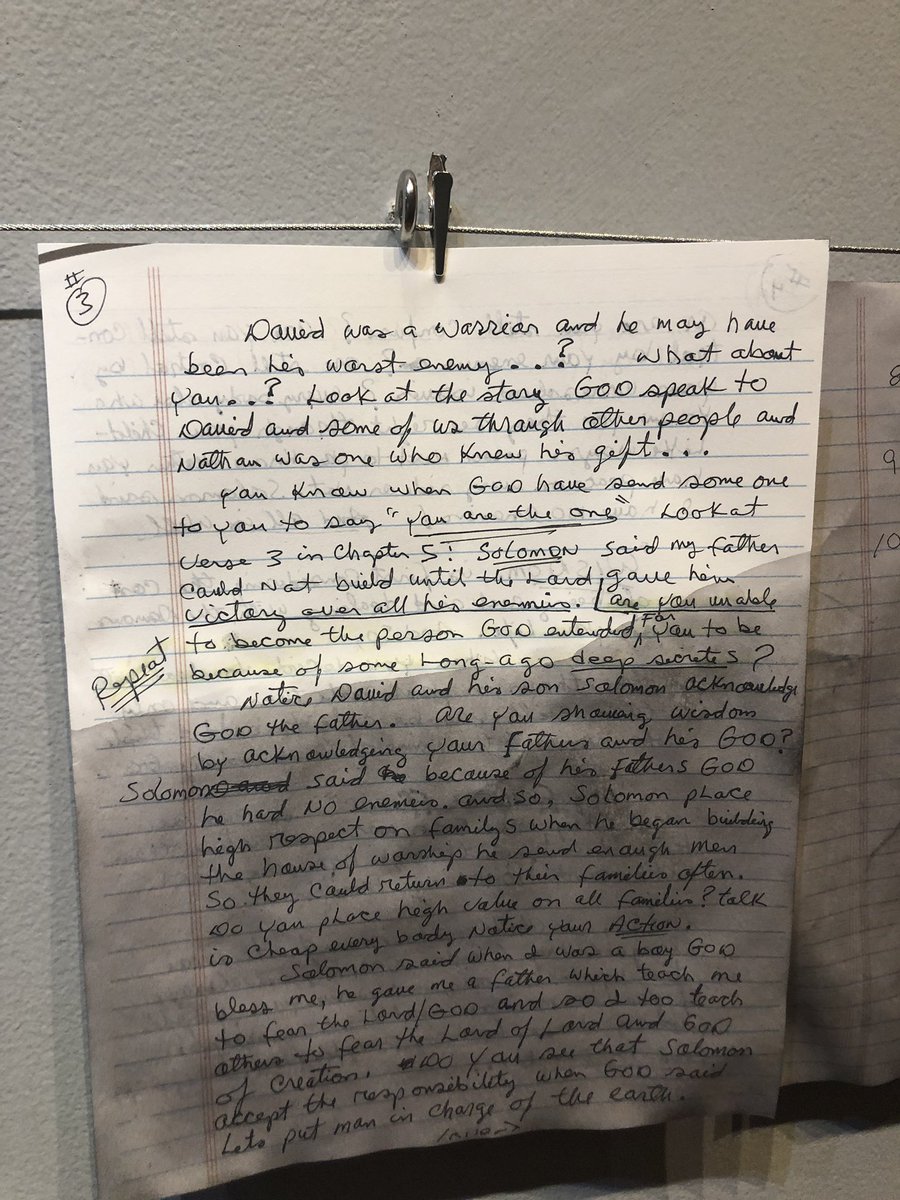 #
3
David was a warrior and he may have
been his worst enemy...? What about
you...? Look at the story GOD speak to
David and some of us through other people and
Nathan was one who knew his gift...
you know when GOD have send some one
to you to say "you are the one" Look at
verse 3 in Chapter 5: SOLOMON said my father
could not build until the Lord gave him
victory over all his enemies. are you unable
to become the person GOD entended for you to be
because of some Long-ago deep secrets?
Repeat
Notice David and his son Solomon acknowledge
GOD the father. are you showing wisdom
by acknowledging your fathers and his GOD?
Solomon said because of his fathers GOD
he had NO enemies. and so, Solomon place
high respect on familys when he began building
the house of worship he send enough men
So they could return to their families often.
Do you place high value on all families? talk
is cheap every body Notice your ACTION.
Solomon said when I was a boy GOD
bless me, he gave me a father which teach me
to fear the Lord/GOD and so I too teach
others to fear the Lord of Lord and GOD
of creation. DO you see that Solomon
accept the responsibility when GOD said
Lets put man in charge of the earth.
8
9
10